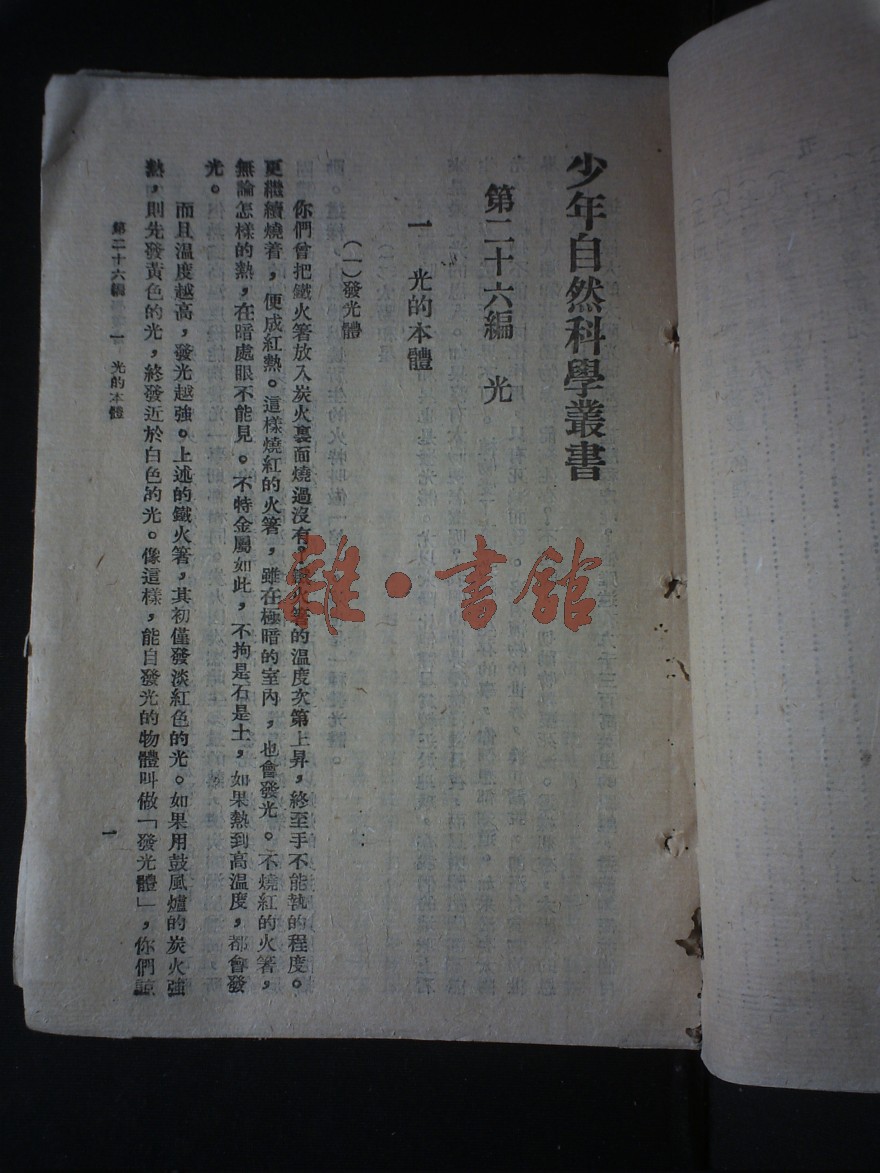 少年自然科學叢書
第二十六編 光
一 光的本體
(一)發光體
你們曾把鐵火箸放入炭火裏面燒過沒有?鐵火箸的溫度次第上昇,終至手不能執的程度。
更繼續燒着,便成紅熱。這樣燒紅的火箸,雖在極暗的室內,也會發光。不燒紅的火箸,
無論怎樣的熱,在暗處眼不能見。不特金屬如此,不拘是石是土,如果熱到高溫度,都會發
光。
而且溫度越高,發光越強。上述的鐵火箸,其初僅發淡紅色的光。如果用鼓風爐的炭火強
熱,則先發黃色的光,終發近於白色的光。像這樣,能自發光的物體叫做「發光體」,你們諒
第二十六編 一 光的本體
一
雜·書館